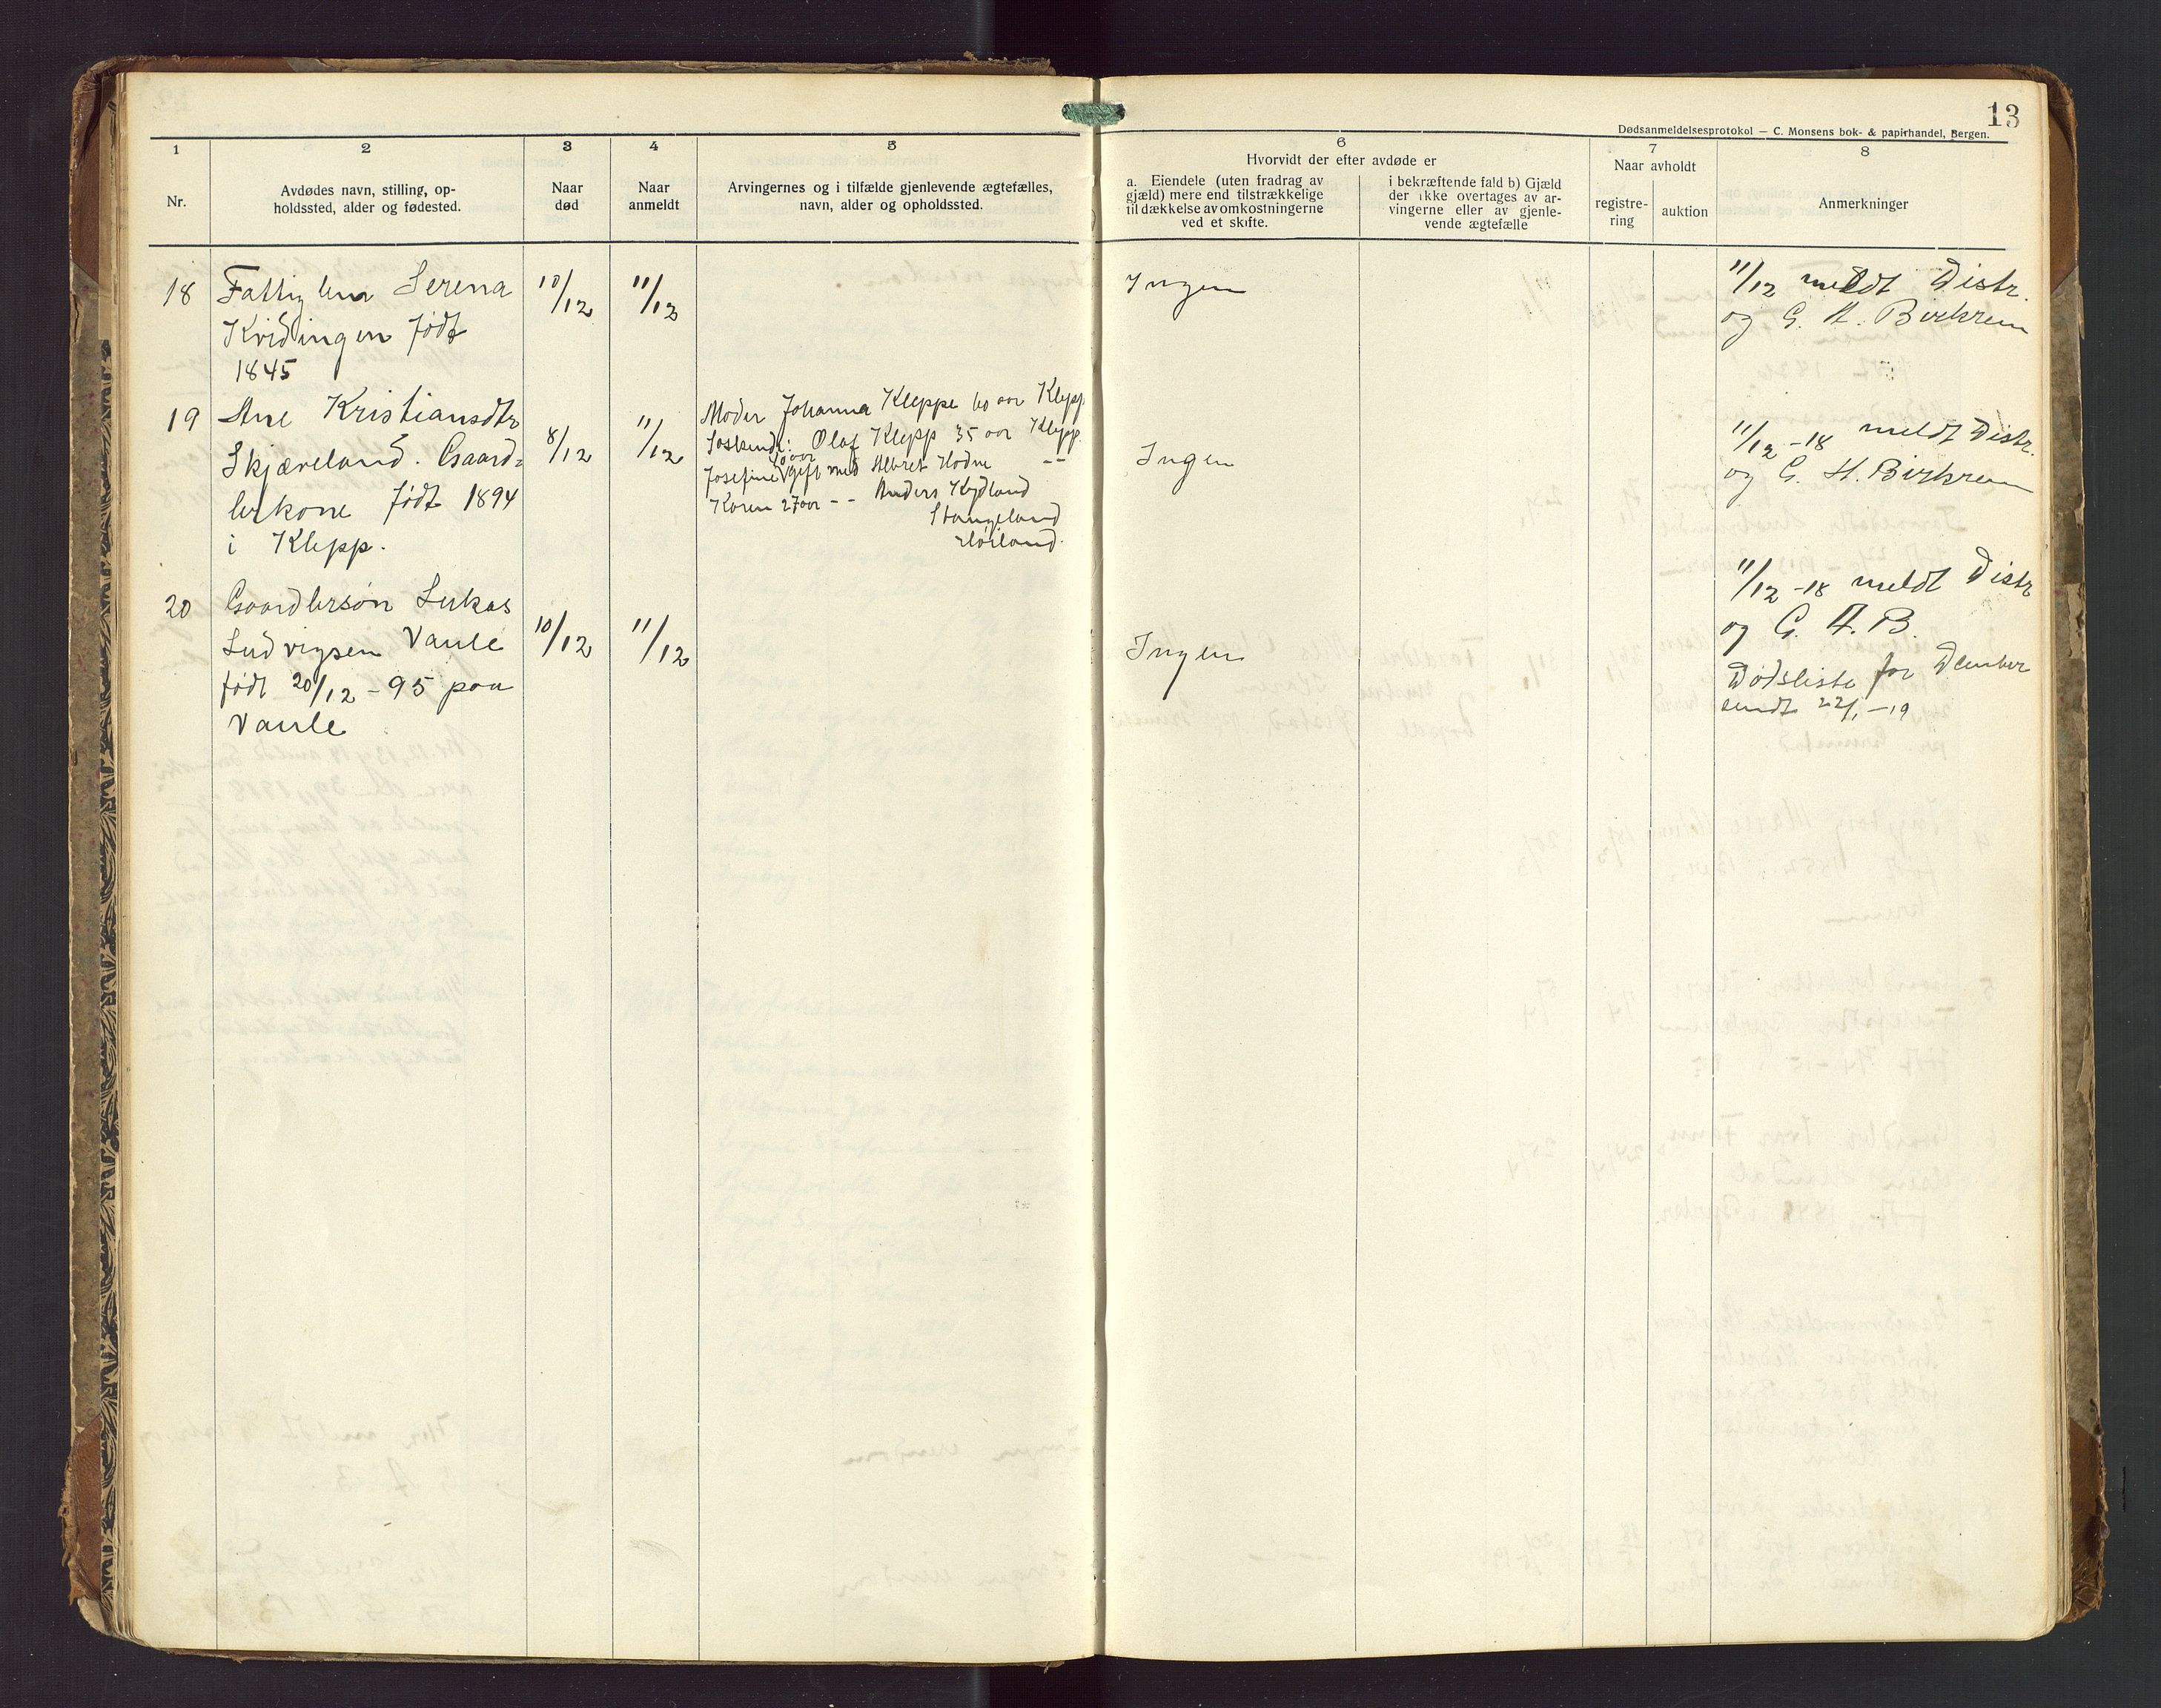 13
Dødsanmeldelsesprotokol — C. Monsens bok- & papirhandel, Bergen.
1 2 3 4 5 6 7 8
Nr.
Avdødes navn, stilling, op-
holdssted, alder og fødested.
Naar
død
Naar
anmeldt
Arvingernes og i tilfælde gjenlevende ægtefælles,
navn, alder og opholdssted.
Hvorvidt der efter avdøde er
a. Eiendele (uten fradrag av
gjæld) mere end tilstrækkelige
til dækkelse av omkostningerne
ved et skifte.
i bekræftende fald b) Gjæld
der ikke overtages av ar-
vingerne eller av gjenle-
vende ægtefælle
Naar avholdt
registre-
ring
auktion
Anmerkninger
18 Fattiglem Serena 10/12 11/12 Ingen 11/12 meldt Distr.
Kvidingen født og G. A. Birkrem
1845
19 Ane Kristiansdtr 8/12 11/12 Ingen 11/12 -18 meldt Distr.
Skjæveland. Gaard= og G. A. Birkrem
brkone født 1894
i Klepp.
Moder Johanna Kleppe 60 aar Klepp
Søskende: Olaf Klepp 35 aar Klepp
Josefine gift med Albret Hodne -"-
Karen 27 aar -"- Anders Kydland
Stangeland
Høiland.
20 Gaardbrsøn Lukas 10/12 11/12 Ingen 11/12 -18 meldt Distr
Ludvigsen Vaule og G. A. B.
født 20/12 -95 paa Dødsliste for December
Vaule sendt 22/1 -19